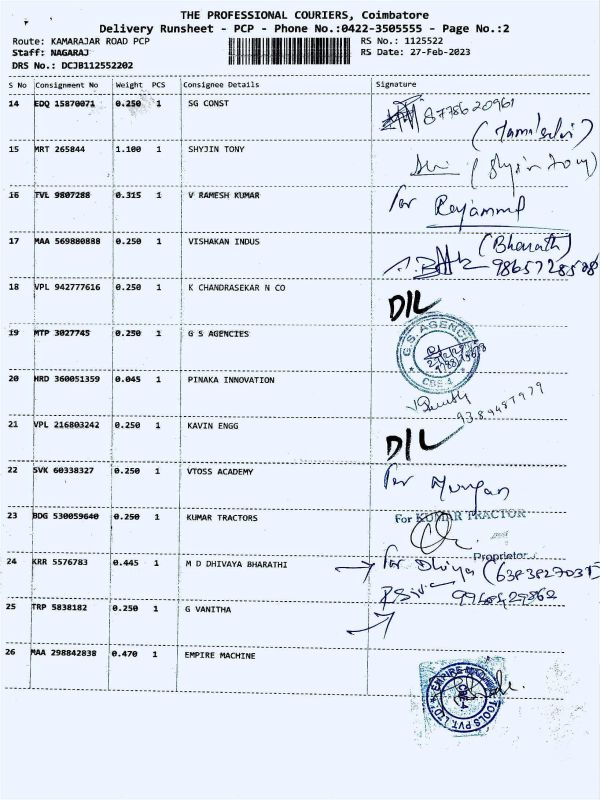 THE PROFESSIONAL COURIERS, Coimbatore
Delivery Runsheet - PCP - Phone No.:0422-3505555 - Page No.:2
Route: KAMARAJAR ROAD PCP
RS No.: 1125522
Staff: NAGARAJ
RS Date: 27-Feb-2023
DRS No.: DCJB112552202
S No Consignment No Weight PCS Consignee Details Signature
14 EDQ 15870071 0.250 1 SG CONST 8778620961
(Tamilselvi)
15 MRT 265844 1.100 1 SHYJIN TONY (Shyjin Tony)
16 TVL 9807288 0.315 1 V RAMESH KUMAR for
17 MAA 569880888 0.250 1 VISHAKAN INDUS (Bharath)
9865728508
18 VPL 942777616 0.250 1 K CHANDRASEKAR N CO D/L
19 MTP 3027745 0.250 1 G S AGENCIES G.S. AGENCIES CBE-4
20 HRD 360051359 0.045 1 PINAKA INNOVATION
9389487979
21 VPL 216803242 0.250 1 KAVIN ENGG D/L
22 SVK 60338327 0.250 1 VTOSS ACADEMY for Murugan
23 BDG 530059640 0.250 1 KUMAR TRACTORS For KUMAR TRACTOR
Proprietor
24 KRR 5576783 0.445 1 M D DHIVAYA BHARATHI for Dhivya
25 TRP 5838182 0.250 1 G VANITHA
26 MAA 298842838 0.470 1 EMPIRE MACHINE
EMPIRE MACHINE TOOLS PVT. LTD.